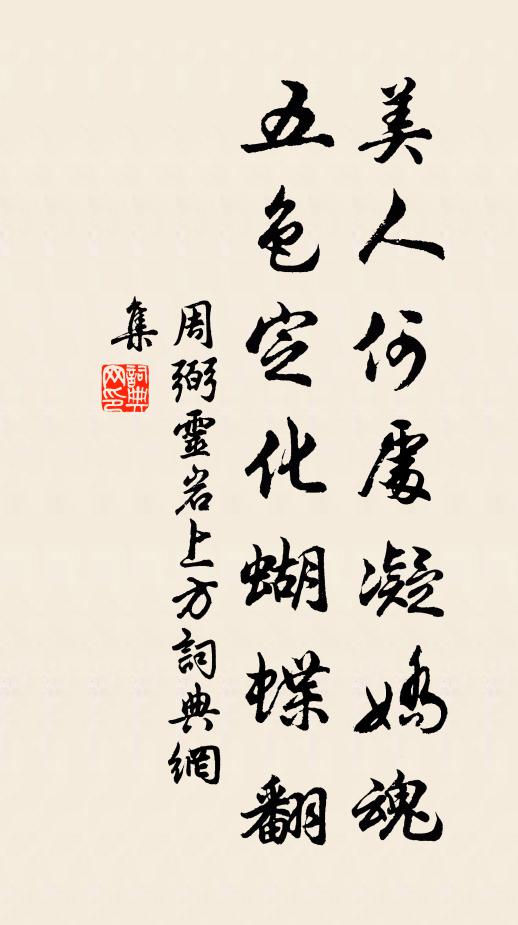 美人何處凝嬌魂
五色定化蝴蝶翻
周弼靈岩上方詞典網
集
詞典
网印